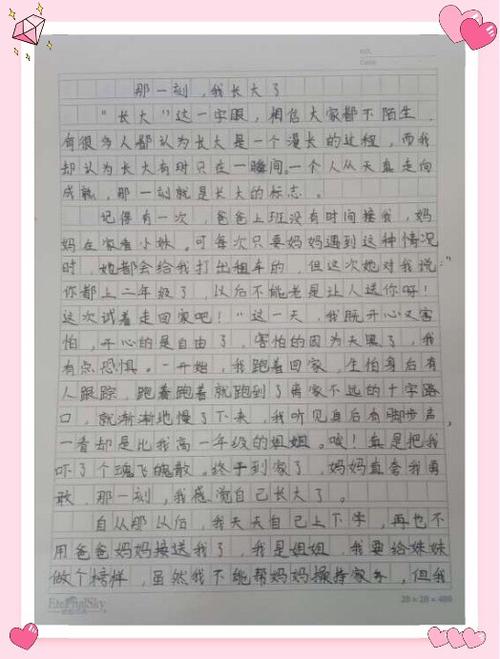 那一刻，我长大了
“长大”这一字眼，相信大家都不陌生，
有很多人都认为长大是一个漫长的过程，而我
却认为长大有时只在一瞬间。一个人从天真走向
成熟，那一刻就是长大的标志。
记得有一次，爸爸上班没有时间接我，妈
妈在家看小妹。可每次只要妈妈遇到这种情况
时，她都会给我打出租车的，但这次她对我说：“
你都上二年级了，以后不能老是让人送你呀！
这次试着走回家吧！”这一天，我既开心又害
怕，开心的是自由了，害怕的因为天黑了，我
有点恐惧。一开始，我跑着回家，生怕身后有
人跟踪，跑着跑着就跑到了离家不远的十字路
口，就渐渐地慢了下来，我听见身后有脚步声，
一看却是比我高一年级的姐姐。哎！真是把我
吓了个魂飞魄散。终于到家了，妈妈直夸我勇
敢，那一刻，我感觉自己长大了。
自从那以后，我天天自己上下学，再也不
用爸爸妈妈接送我了，我是姐姐，我要给妹妹
做个榜样，虽然我不能帮妈妈操持家务，但我
EternalSky
20×20=400